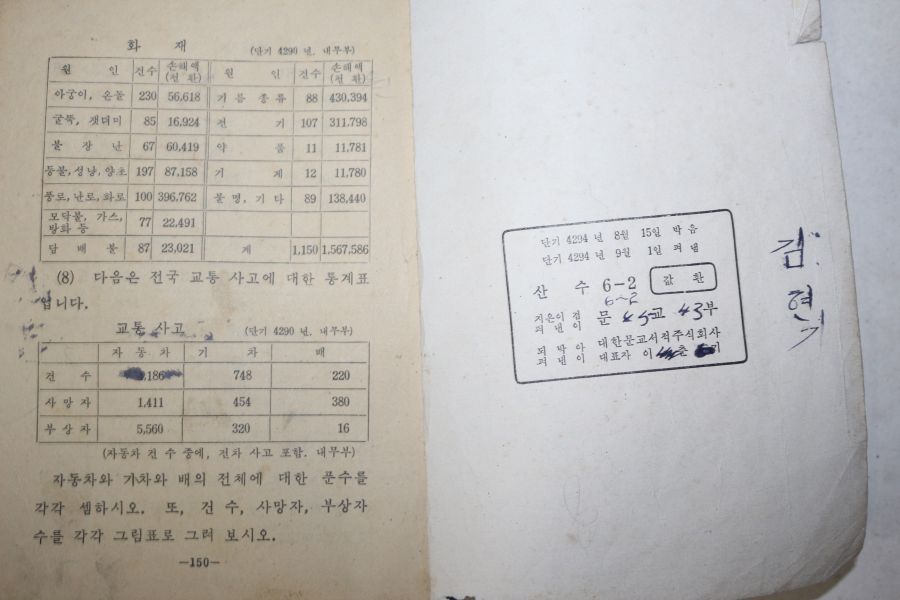 화 재
(단기 4290 년, 내무부)
원 인 건수 손해액 (천 환) 원 인 건수 손해액 (천 환)
아궁이, 온돌 230 56,618 기 름 종 류 88 430,394
굴뚝, 잿더미 85 16,924 전 기 107 311,798
불 장 난 67 60,419 약 품 11 11,781
등불, 성냥, 양초 197 87,158 기 계 12 11,780
풍로, 난로, 화로 100 396,762 불 명, 기 타 89 138,440
모닥불, 가스, 방화 등 77 22,491
담 배 불 87 23,021 계 1,150 1,567,586
(8) 다음은 전국 교통 사고에 대한 통계표
입니다.
교통 사고
(단기 4290 년, 내무부)
자 동 차 기 차 배
건 수 ,186 748 220
사 망 자 1,411 454 380
부 상 자 5,560 320 16
(자동차 건 수 중에, 전차 사고 포함. 내무부)
자동차와 기차와 배의 전체에 대한 푼수를
각각 셈하시오. 또, 건 수, 사망자, 부상자
수를 각각 그림표로 그려 보시오.
—150—
단기 4294 년 8월 15일 박 음
단기 4294 년 9월 1일 펴 냄
산 수 6-2 값 환
6-2
지은이 겸 펴 낸 이 문 교 부
되 박 아 펴 낸 이 대한문교서적주식회사
대표자 이 춘
김
현